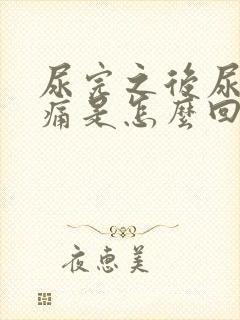 尿完之後尿
痛是怎麼回
夜惠美